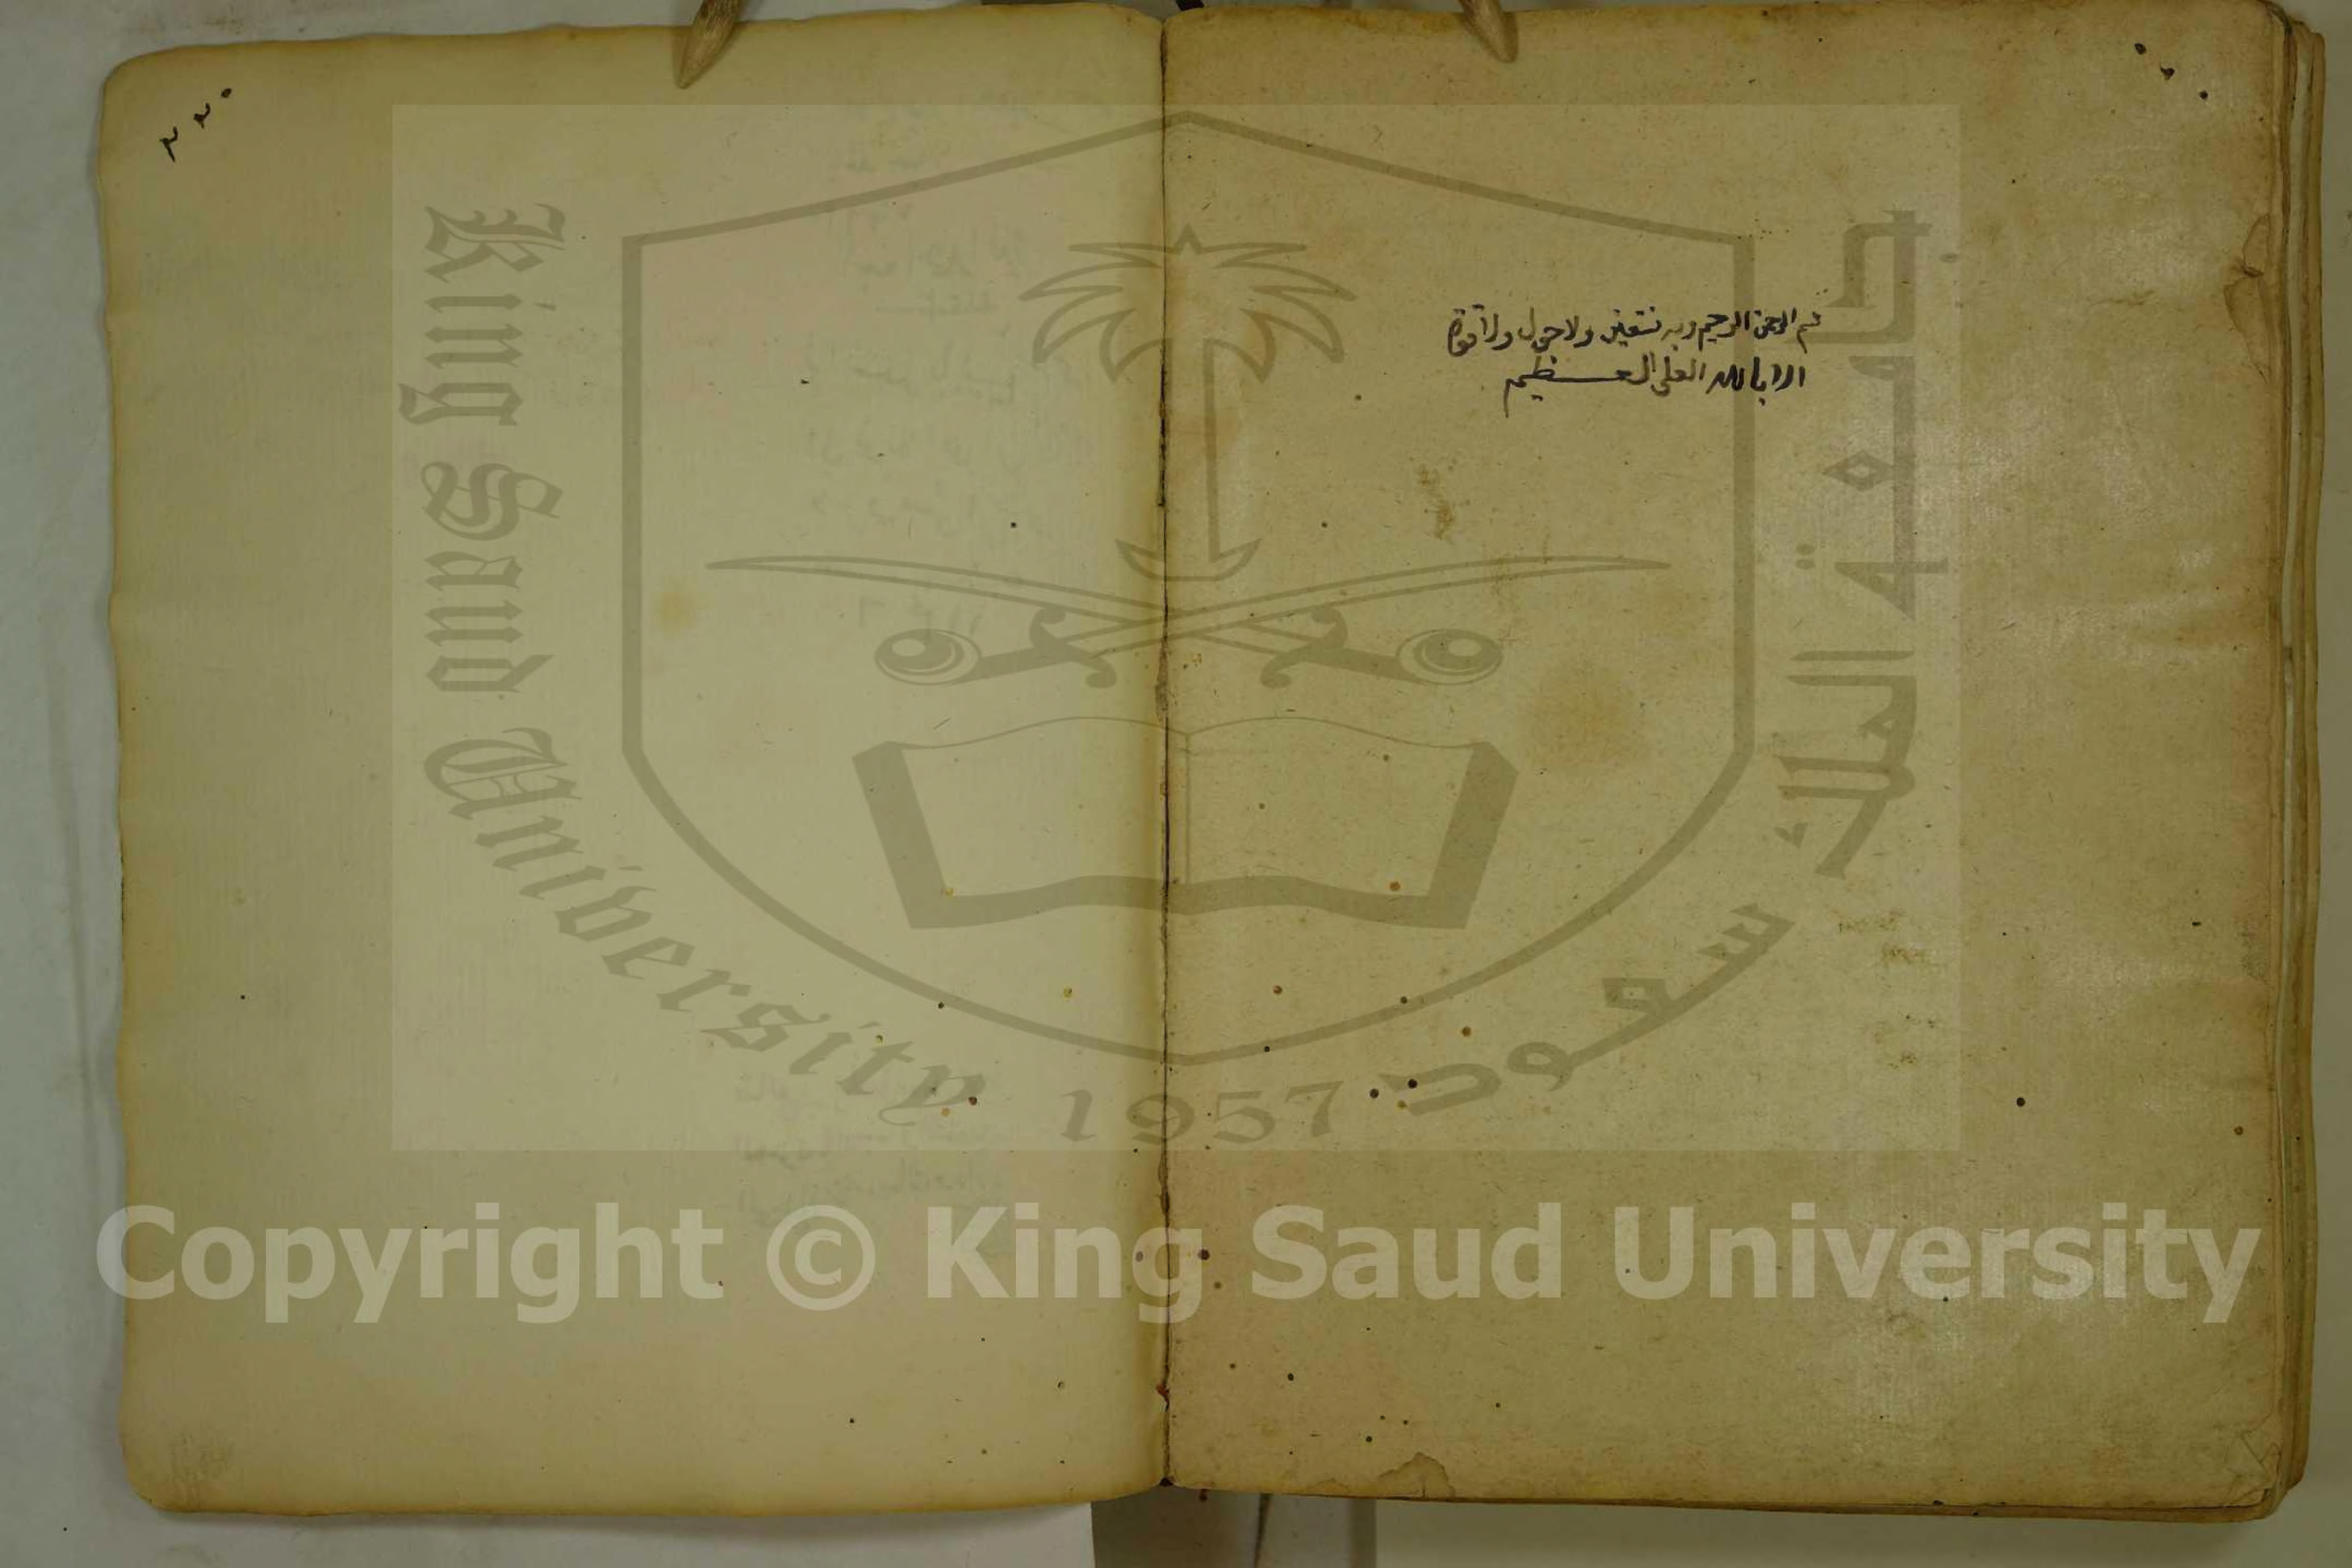 م الرحمن الرحيم وبه نستعين ولا حول ولا قوة
الا بالله العلي العظيم
King Saud University
1957
جامعة الملك سعود
Copyright © King Saud University